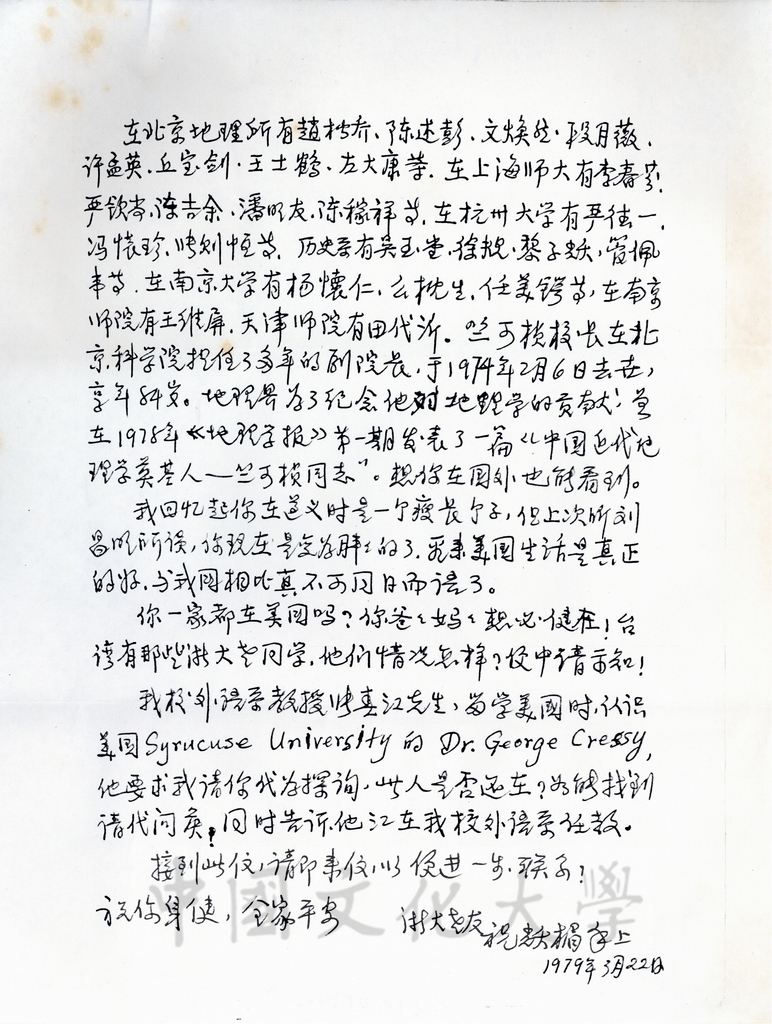 在北京地理所有趙松乔、陈述彭、文焕然、段月薇、
许孟英、丘宝剑、王士鹤、左大康等。在上海师大有李春芬、
严钦尚、陈吉余、潘明友、陈稼祥等，在杭州大学有严德一、
冯怀珍、张则恒等，历史系有吴玉堂、徐规、黎子耀，管佩
韦等，在南京大学有杨懷仁、么枕生，任美锷等，在南京
师院有王维屏，天津师院有田代沂。竺可桢校长在北
京科学院担任了多年的副院长，于1974年2月6日去世，
享年84岁。地理界为了纪念他对地理学的贡献，曾
在1978年《地理学报》第一期发表了一篇《中国近代地
理学奠基人——竺可桢同志"。想你在国外也能看到。
我回忆起你在遵义时是一个瘦长个子，但上次听刘
昌明所谈，你现在是变为胖胖的了。看来美国生活是真正
的好，与我国相比真不可同日而语了。
你一家都在美国吗？你爸爸妈妈想必健在！台
湾有那些浙大老同学，他们情况怎样？便中请示知！
我校外语系教授张真江先生，留学美國时，认识
美国Syrucuse University的Dr. George Cressy,
他要求我请你代为探询，此人是否还在？如能找到
请代问候，同时告诉他江在我校外语系任教。
接到此信，请即来信，以便进一步联系？
祝你身健，全家平安
浙大老友 祝耀楣手上
1979年3月22日
中國文化大學